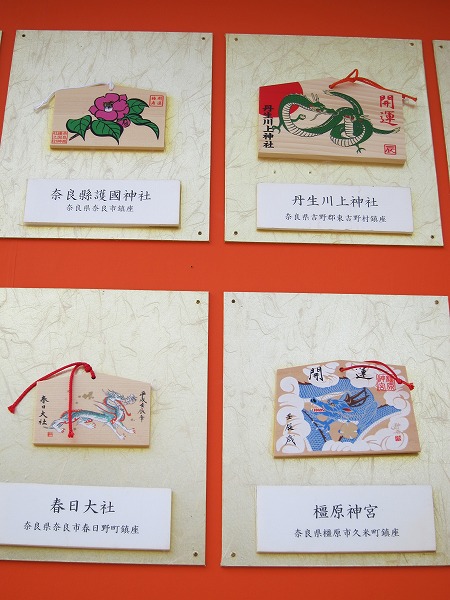 奈良縣護國神社
奈良県奈良市鎮座
開運
丹生川上神社
辰
丹生川上神社
奈良県吉野郡東吉野村鎮座
春日大社
春日大社
奈良県奈良市春日野町鎮座
開運
壬辰歳
橿原神宮
奈良県橿原市久米町鎮座